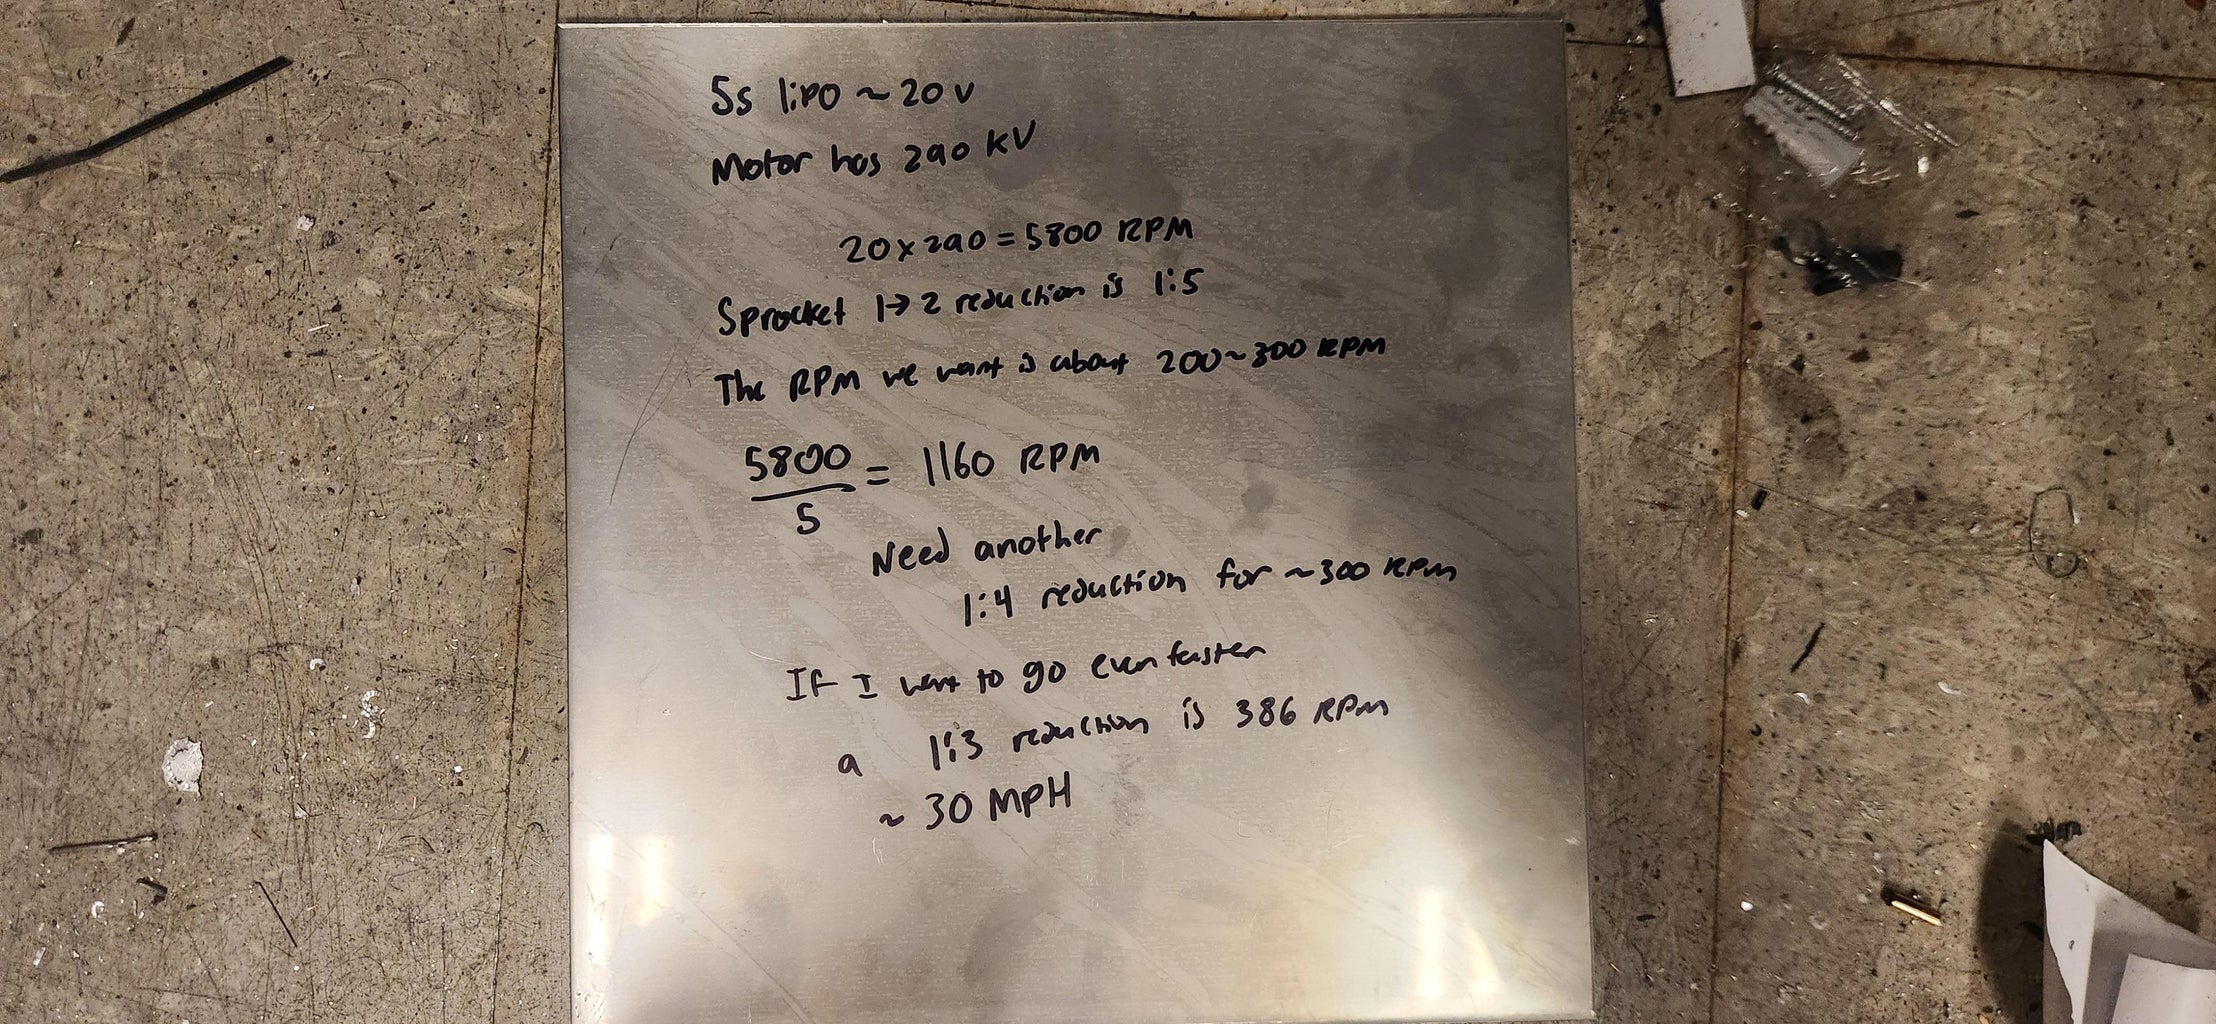 5s lipo ~ 20 v
Motor has 290 kV
20 x 290 = 5800 RPM
Sprocket 1→2 reduction is 1:5
The RPM we want is about 200~300 RPM
5800
/5 = 1160 RPM
Need another
1:4 reduction for ~300 RPM
If I want to go even faster
a 1:3 reduction is 386 RPM
~ 30 MPH